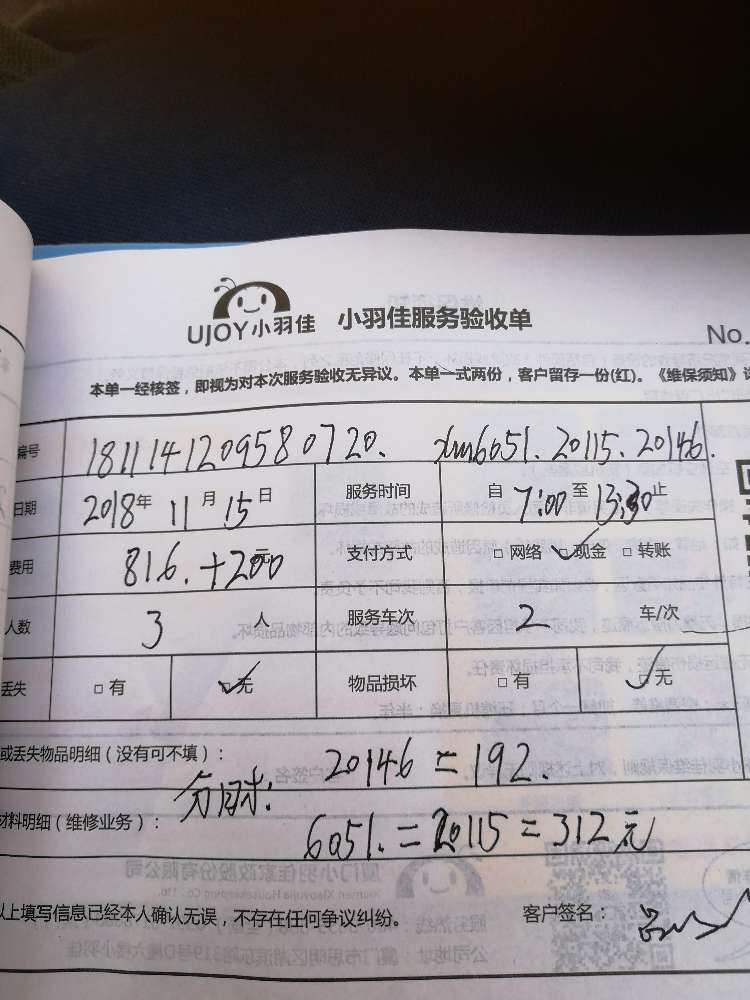 UJOY小羽佳 小羽佳服务验收单
No.
本单一经核签，即视为对本次服务验收无异议。本单一式两份，客户留存一份(红)。《维保须知》
编号 1811141209580720. xm6051. 20115. 20146.
日期 2018年 11月 15日 服务时间 自 7:00 至 13:30 止
费用 816.+200元 支付方式 □网络 ☑现金 □转账
人数 3 人 服务车次 2 车/次
丢失 □有 ☑无 物品损坏 □有 ☑无
或丢失物品明细（没有可不填）： 20146 = 192.
材料明细（维修业务）： 分时: 6051. = 20115 = 312元
以上填写信息已经本人确认无误，不存在任何争议纠纷。 客户签名：